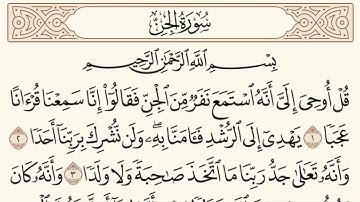 سُورَةُ الجِنِّ
بِسْمِ اللَّهِ الرَّحْمَٰنِ الرَّحِيمِ
قُلْ أُوحِيَ إِلَيَّ أَنَّهُ ٱسْتَمَعَ نَفَرٌ مِّنَ ٱلْجِنِّ فَقَالُوٓا۟ إِنَّا سَمِعْنَا قُرْءَانًا
عَجَبًا ١ يَهْدِىٓ إِلَى ٱلرُّشْدِ فَـَٔامَنَّا بِهِۦ وَلَن نُّشْرِكَ بِرَبِّنَآ أَحَدًا ٢
وَأَنَّهُۥ تَعَٰلَىٰ جَدُّ رَبِّنَا مَا ٱتَّخَذَ صَٰحِبَةً وَلَا وَلَدًا ٣ وَأَنَّهُۥ كَانَ